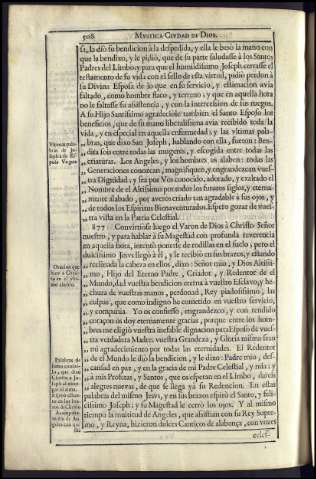 508 MYSTICA CIUDAD DE DIOS.
sa, la diò su bendicion à la despedida, y ella le besò la mano con
que la bendixo, y le pidiò, que de su parte saludasse à los Santos
Padres del Limbo; y para que el humildissimo Joseph cerrasse el
testamento de su vida con el sello de esta virtud, pidiò perdon à
su Divina Esposa de lo que en su servicio, y estimacion avia
faltado, como hombre flaco, y terreno; y que en aquella hora
no le faltasse su assistencia, y con la intercession de sus ruegos.
A su Hijo Santissimo agradeciò tambien el Santo Esposo los
beneficios, que de su mano liberalissima avia recibido toda la
vida, y en especial en aquella enfermedad; y las vltimas pala-
bras, que dixo San Joseph, hablando con ella, fueron: Ben-
dita sois entre todas las mugeres, y escogida entre todas las
criaturas. Los Angeles, y los hombres os alaben: todas las
Generaciones conozcan, magnifiquen, y engrandezcan vues-
tra Dignidad; y sea por Vos conocido, adorado, y exaltado el
Nombre de el Altissimo por todos los futuros siglos, y eterna-
mente alabado, por averos criado tan agradable à sus ojos, y
de todos los Espiritus Bienaventurados. Espero gozar de vues-
tra vista en la Patria Celestial.
877 Convirtiòse luego el Varon de Dios à Christo Señor
nuestro, y para hablar à su Magestad con profunda reverencia
en aquella hora, intentò ponerse de rodillas en el suelo; pero el
dulcissimo Jesus llegò à èl, y le recibiò en sus brazos, y estando
reclinada la cabeza en ellos, dixo: Señor mio, y Dios Altissi-
mo, Hijo del Eterno Padre, Criador, y Redentor de el
Mundo, dad vuestra bendicion eterna à vuestro Esclavo, y he-
chura de vuestras manos, perdonad, Rey piadosissimo, las
culpas, que como indigno he cometido en vuestro servicio,
y compañia. Yo os confiesso, engrandezco, y con rendido
corazon os doy eternamente gracias, porque entre los hom-
bres me eligiò vuestra inefable dignacion para Esposo de vues-
tra verdadera Madre: vuestra Grandeza, y Gloria misma sean
mi agradecimiento por todas las eternidades. El Redentor
de el Mundo le diò la bendicion, y le dixo: Padre mio, des-
cansad en paz, y en la gracia de mi Padre Celestial, y mia; y
à mis Profetas, y Santos, que os esperan en el Limbo, dareis
alegres nuevas, de que se llega yà su Redencion. En estas
palabras del mismo Jesus, y en sus brazos espirò el Santo, y feli-
cissimo Joseph; y su Magestad le cerrò los ojos. Y al mismo
tiempo la multitud de Angeles, que assistian con su Rey Supre-
mo, y Reyna, hizieron dulces Canticos de alabança, con vozes